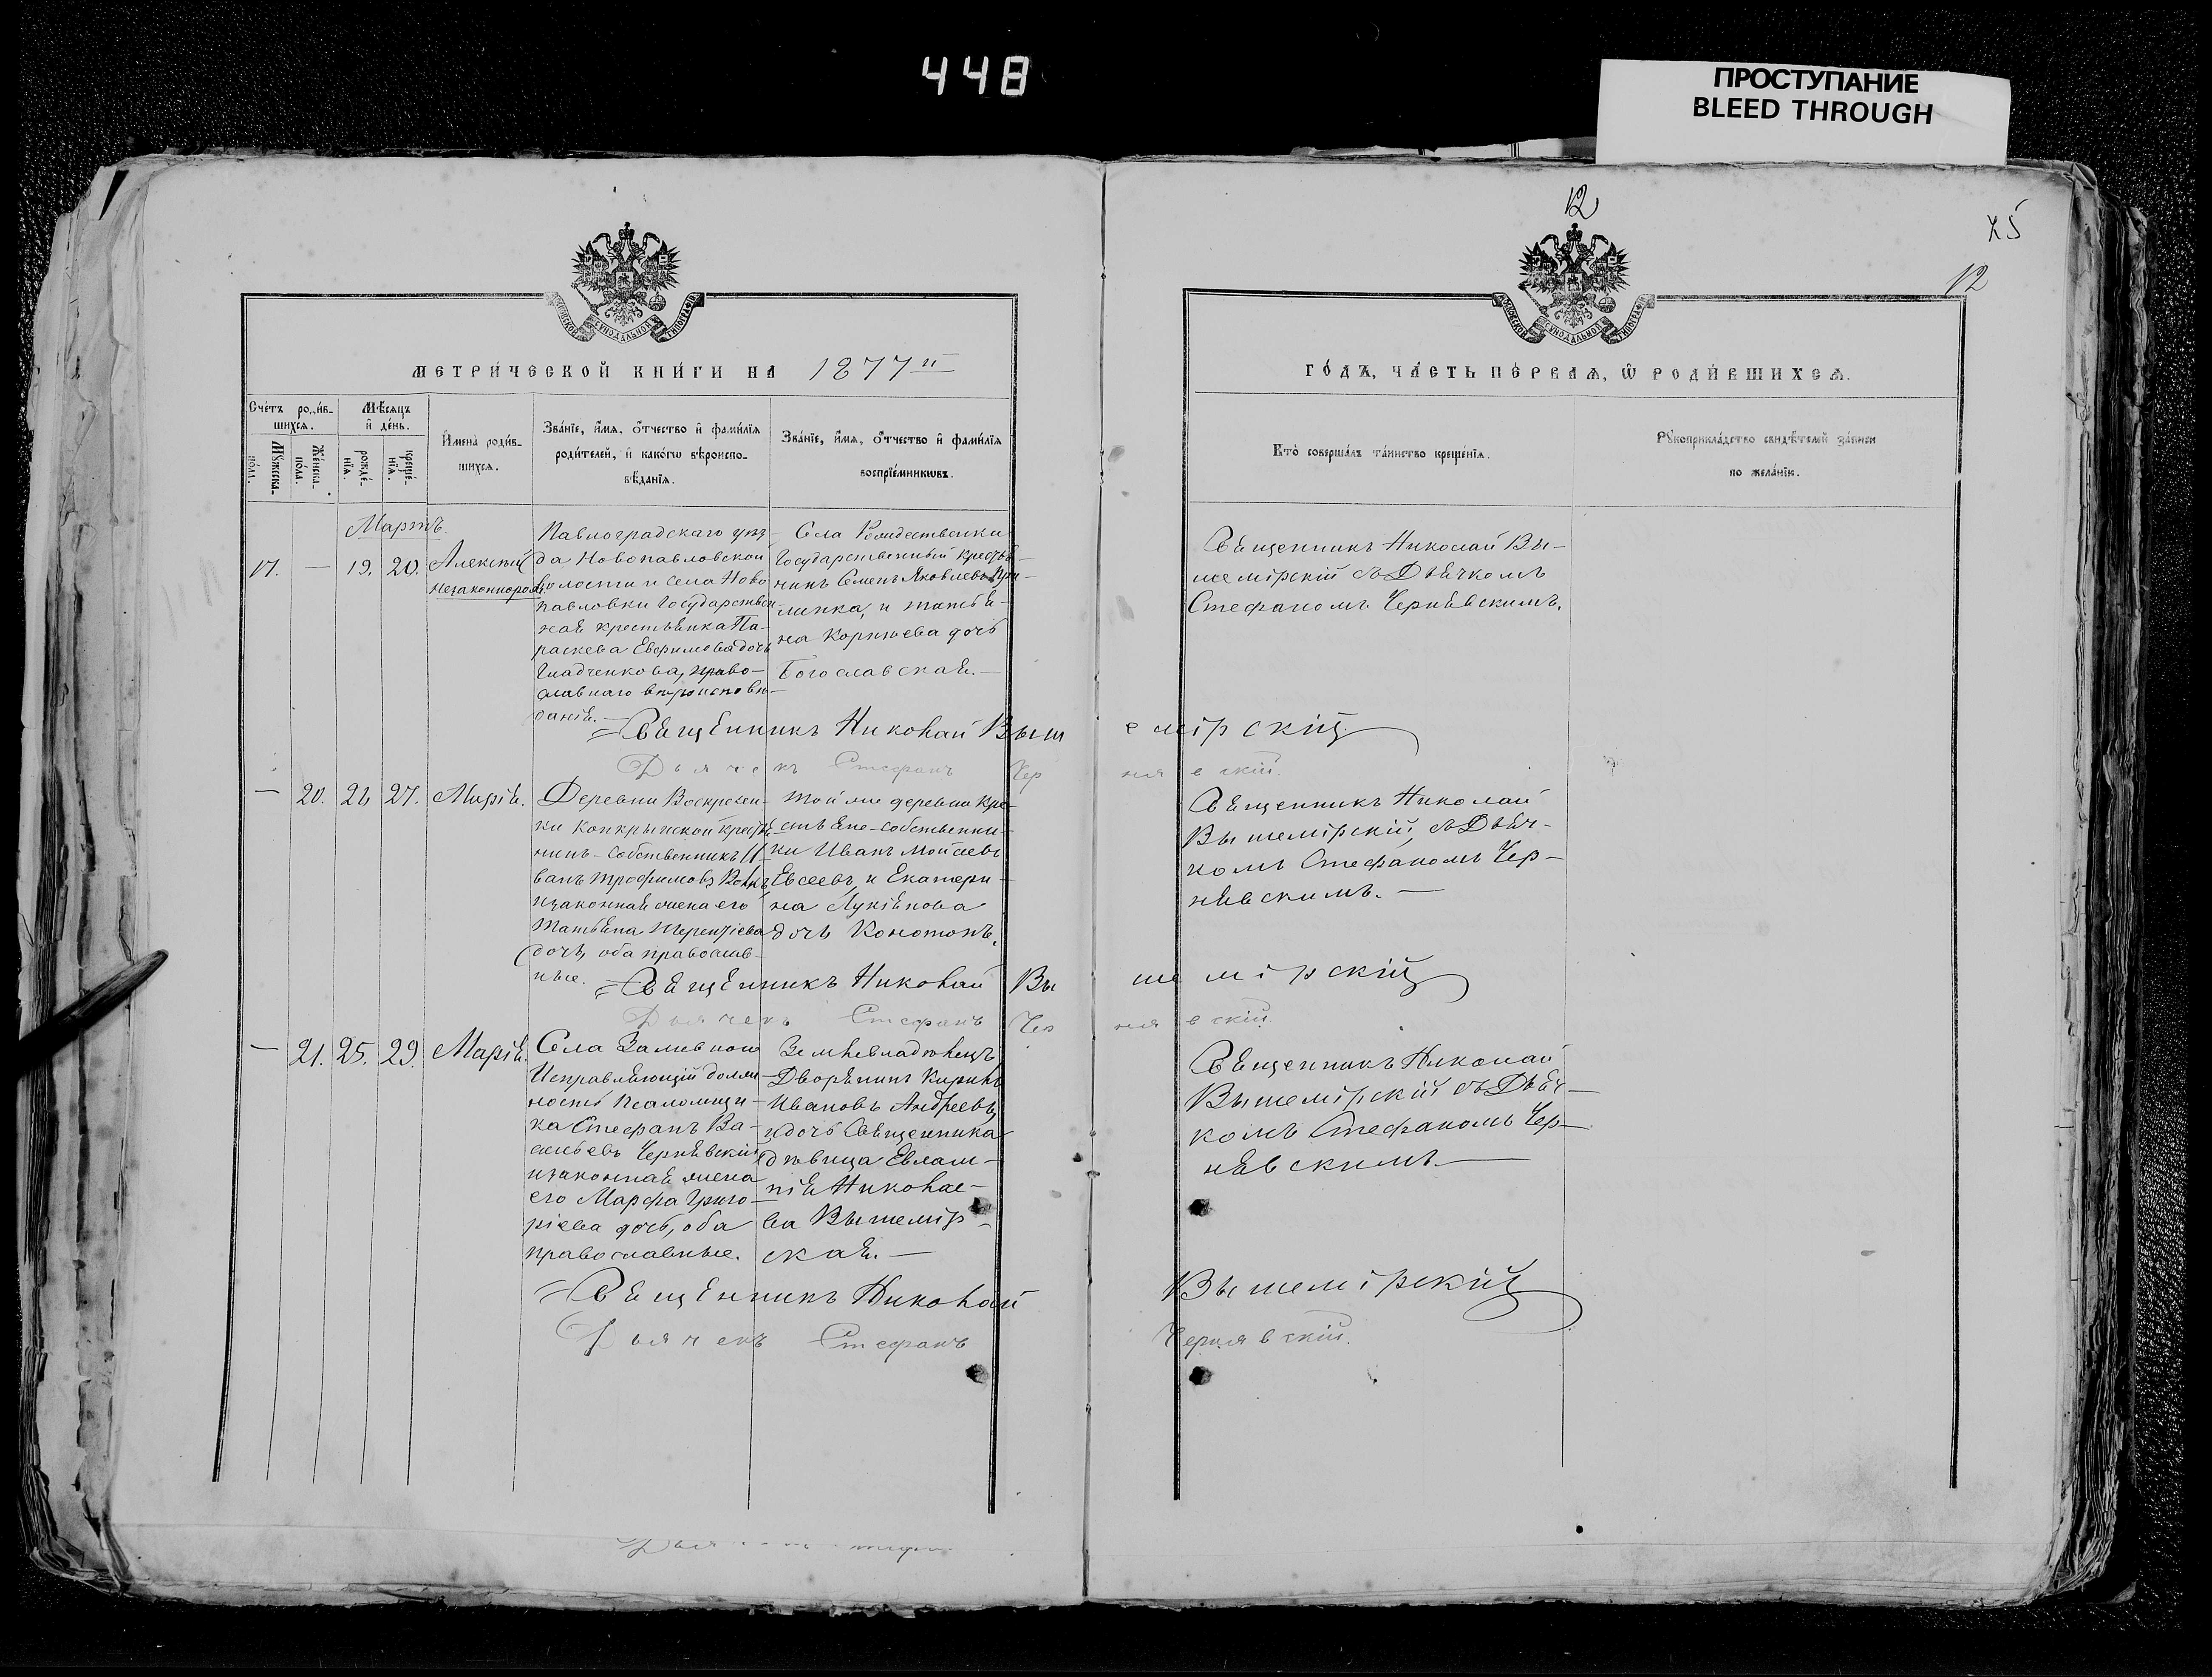 448
ПРОСТУПАНИЕ
BLEED THROUGH
12
х5
12
МЕТРИ́ЧЕСКОЙ КНИ́ГИ НА 1877й
ГО́ДЪ, ЧА́СТЬ ПЕ́РВАЯ, Ѿ РОДИ́ВШИХСЯ.
Сче́тъ роди́в-
шихся.
Мꙋ́жеска-
по́ла.
Же́нска-
по́ла.
Мѣ́сяцъ
и҆ де́нь.
рожде́-
нїя.
креще́-
нїя.
И҆мена̀ роди́в-
шихся.
Зва́нїе, и҆́мя, ѻ҆́тчество и҆ фами́лїя
роди́телей, и҆ како́гѡ вѣроиспо-
вѣ́данїя.
Зва́нїе, и҆́мя, ѻ҆́тчество и҆ фами́лїя
воспрїе́мникѡвъ.
Кто̀ соверша́лъ та́инство креще́нїя.
Рꙋкоприкла́дство свидѣ́телей за́писи
по жела́нїю.
Мартъ
17. — 19. 20. Алексѣй
незаконнорож.
Павлоградскаго уѣз-
да Новопавловской
волости и села Ново
павловки Государствен-
ная крестьянка Па-
раскева Евфимова дочь
Гладченкова, право-
славнаго вѣроисповѣ-
данія. —
Села Рождественки
Государственный крестья-
нинъ Семенъ Яковлевъ
и татья-
на Корнѣева дочь
Богославская. —
Священникъ Николай Вы-
шемірскій съ Дьячкомъ
Стефаномъ Чернявскимъ.
Священникъ Николай Вышемірскій
Дьячекъ Стефанъ Чернявскій.
— 20. 26 27. Марія.
Деревни Воскресен-
ки Конкрынской крестья
нинъ-Собственникъ И-
ванъ Трофимовъ
и законная жена его
Татьяна Терентіева
дочь, оба православ-
ные.
Той же деревни кре-
стьяне-собственни-
ки Иванъ Мойсеевъ
Евсеевъ, и Екатери-
на Лукіянова
дочь Конотопъ.
Священникъ Николай
Вышемірскій, съ Дьяч-
комъ Стефаномъ Чер-
нявскимъ. —
Священникъ Николай Вышемірскій
Дьячекъ Стефанъ Чернявскій.
— 21. 25. 29. Марія.
Села Заливнаго
Исправляющій долж-
ность Псаломщи-
ка Стефанъ Ва-
сильевъ Чернявскій
и законная жена
его Марфа Григо-
ріева дочь, оба
православные.
Землевладѣлецъ
Дворянинъ Кирилъ
Ивановъ Андреевъ,
и дочь Священника
дѣвица Евлам-
пія Николае-
ва Вышемір-
ская. —
Священникъ Николай
Вышемірскій съ Дьяч-
комъ Стефаномъ Чер-
нявскимъ. —
Священникъ Николай Вышемірскій
Дьячекъ Стефанъ Чернявскій.